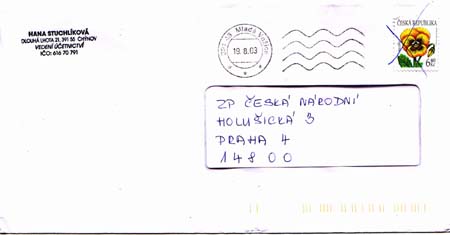 HANA STUCHLÍKOVÁ
DLOUHÁ LHOTA 21, 391 55 CHÝNOV
VEDENÍ ÚČETNICTVÍ
IČO: 616 70 791
Mladá Vožice
19. 8. 03
ČESKÁ REPUBLIKA
6,40
ZP ČESKÁ NÁRODNÍ
HOLUŠICKÁ 3
PRAHA 4
14800